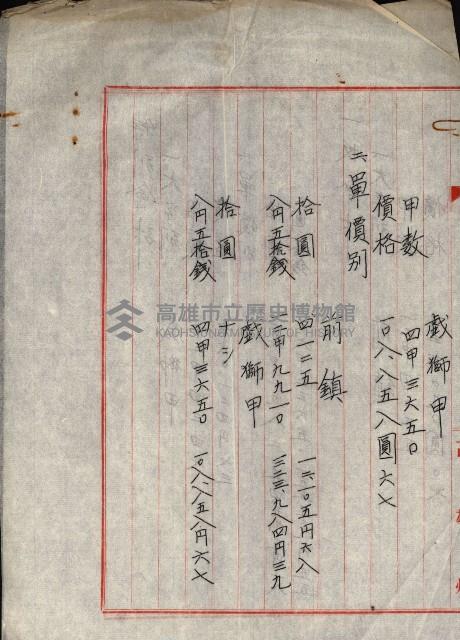 戯獅甲
甲数 四甲三六五〇
價格 一〇八、八五八圓六七
二、單價別
前鎮
拾圓 四一二五 一二、一〇五円六八
八円五拾銭 二甲九九一〇 三三三、九八四円三九
戯獅甲
拾圓 ナシ
八円五拾銭 四甲三六五〇 一〇八、八五八円六七
高雄市立歷史博物館
KAOHSIUNG MUSEUM OF HISTORY
高雄州